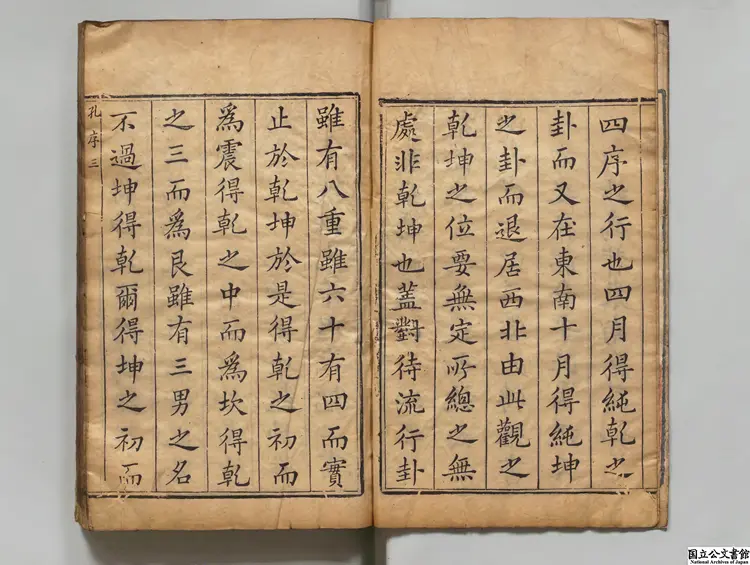 四序之行也四月得純乾之
卦而又在東南十月得純坤
之卦而退居西北由此觀之
乾坤之位要無定所總之無
處非乾坤也蓋對待流行卦
雖有八重雖六十有四而實
止於乾坤於是得乾之初而
為震得乾之中而為坎得乾
之三而為艮雖有三男之名
不過坤得乾爾得坤之初而
孔序三
国立公文書館
National Archives of Japan